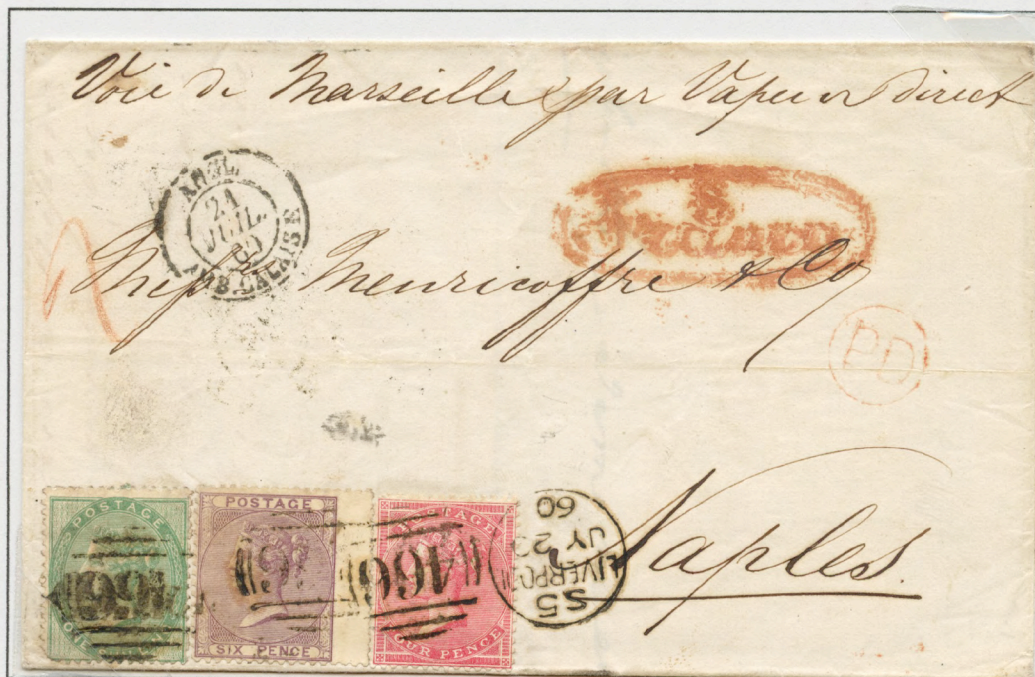 Voie de Marseille par Vapeur direct
ANGL.
21
JUIL.
60
AMB. CALAIS E
Mess Meuricoffre & Co
PD
Naples.
POSTAGE
466
POSTAGE
SIX PENCE
POSTAGE
466
FOUR PENCE
LIVERPOOL
JY 20
60
S5